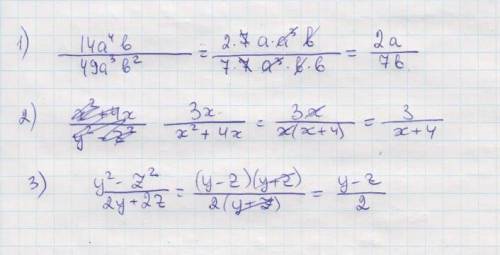 1) 14a⁴b / 49a³b² = 2·7a·a³b / 7·7a³·b·b = 2a / 7b
2) 3x / x²+4x = 3x / x(x+4) = 3 / x+4
3) y²-z² / 2y+2z = (y-z)(y+z) / 2(y+z) = y-z / 2